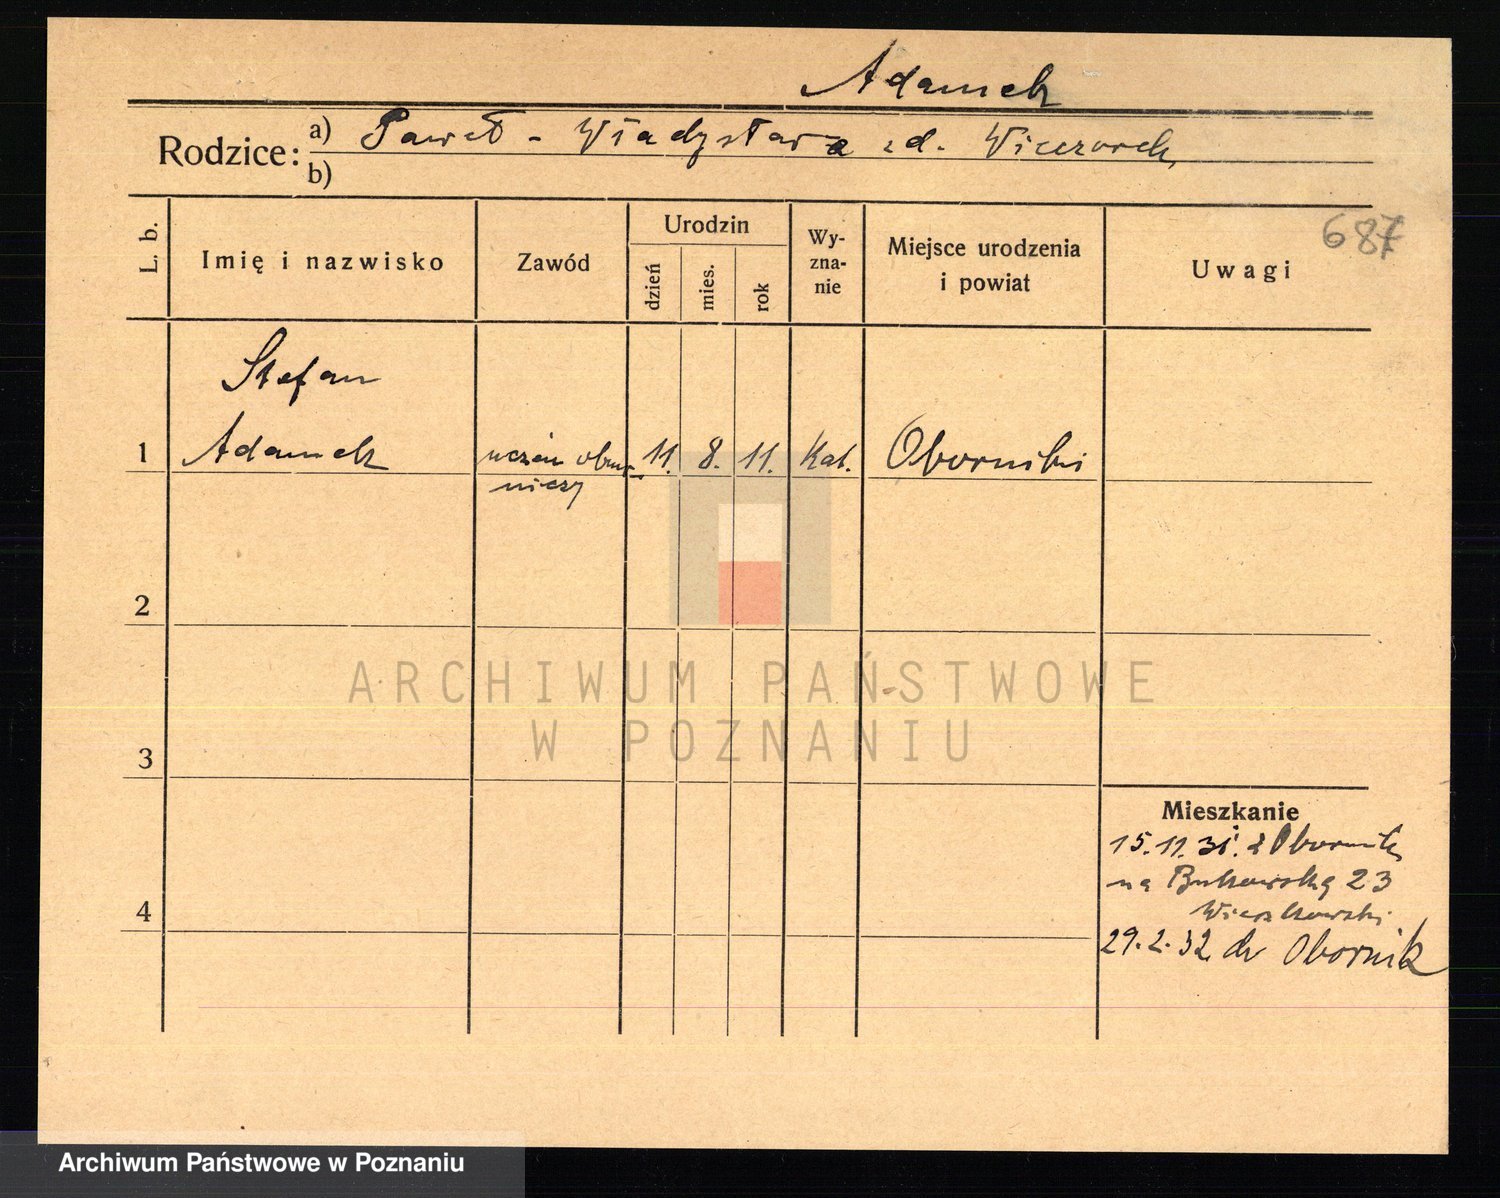 Adamek
Rodzice: a) Paweł - Władysława zd. Wieczorek
b)
687
L. b. Imię i nazwisko Zawód Urodzin dzień mies. rok Wy-zna-nie Miejsce urodzenia i powiat Uwagi
Stefan
1 Adamek uczeń 11. 8. 11. Kat. Oborniki
2
3
ARCHIWUM PAŃSTWOWE
W POZNANIU
Mieszkanie
15.11.31. z Obornik
na Bukowską 23
4
29.2.32 do Obornik
Archiwum Państwowe w Poznaniu